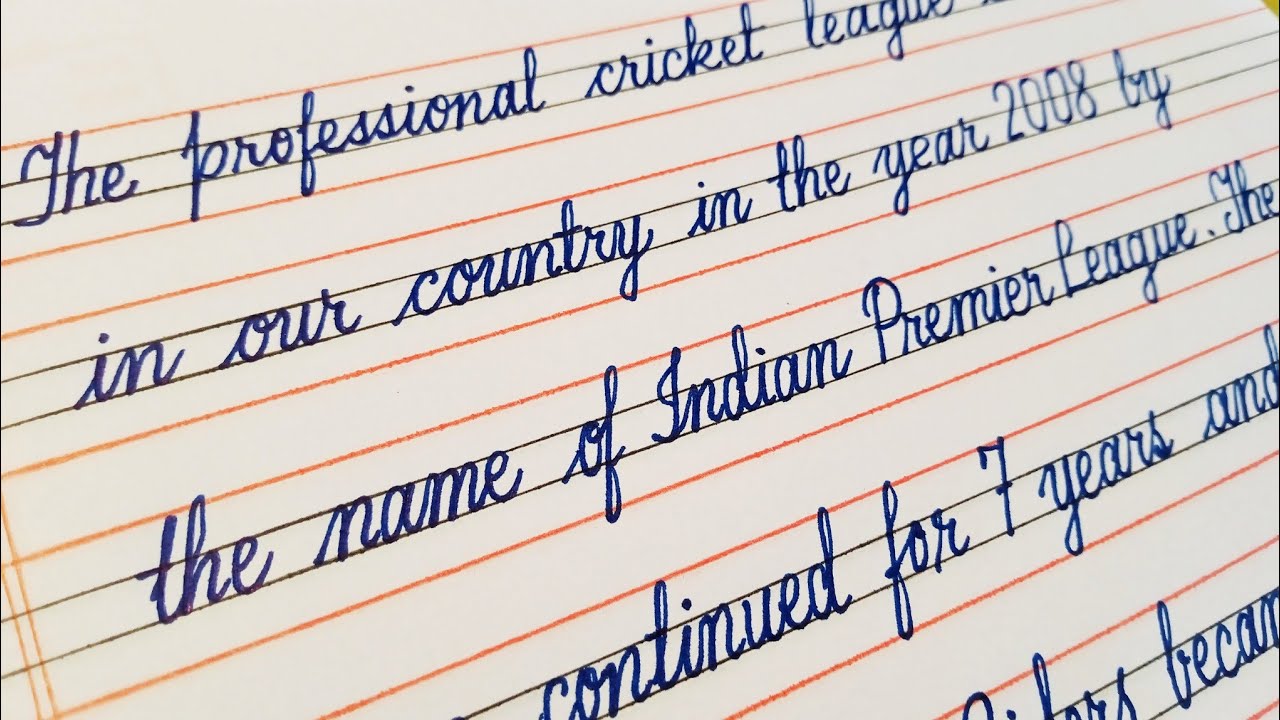 The professional cricket league
in our country in the year 2008 by
the name of Indian Premier League. The
continued for 7 years and